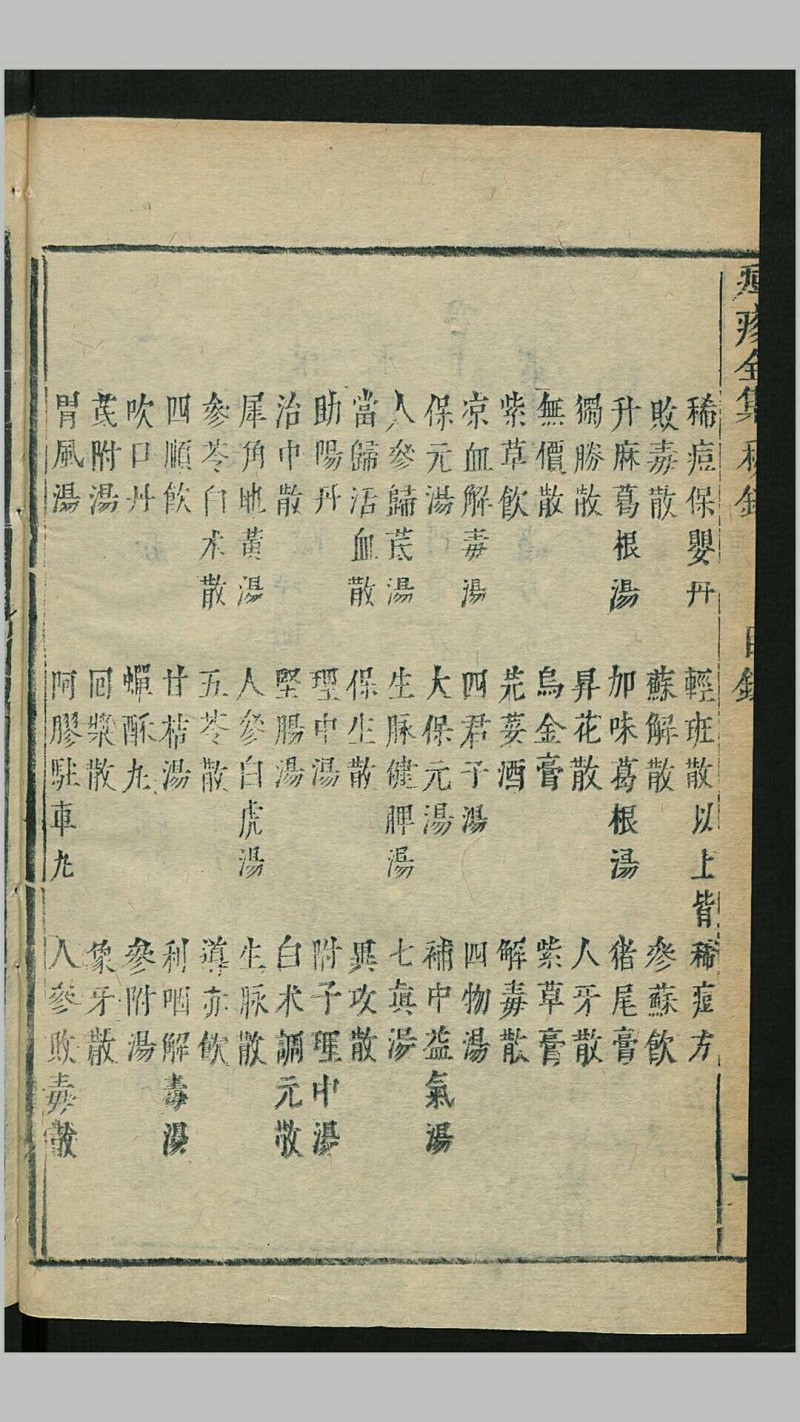 疹全集
稀痘保嬰丹 輕班散以上皆稀痘方
敗毒散 蘇解散 參蘇飲
升麻葛根湯 加味葛根湯 猪尾膏
獨勝散 昇花散 人牙散
無價散 烏金膏 紫草膏
紫草飲 芫荽酒 解毒散
凉血解毒湯 四君子湯 四物湯
保元湯 大保元湯 補中益氣湯
人參歸芪湯 生脉健脾湯 七眞湯
當歸活血散 保生散 異攻散
助陽丹 理中湯 附子理中湯
治中散 堅腸湯 白术調元散
犀角地黃湯 人參白虎湯 生脉散
參苓白术散 五苓散 導赤飲
四順飲 甘桔湯 利咽解毒湯
吹口丹 蟬酥九 參附湯
芪附湯 回漿散 象牙散
胃風湯 阿膠駐車九 人參敗毒散